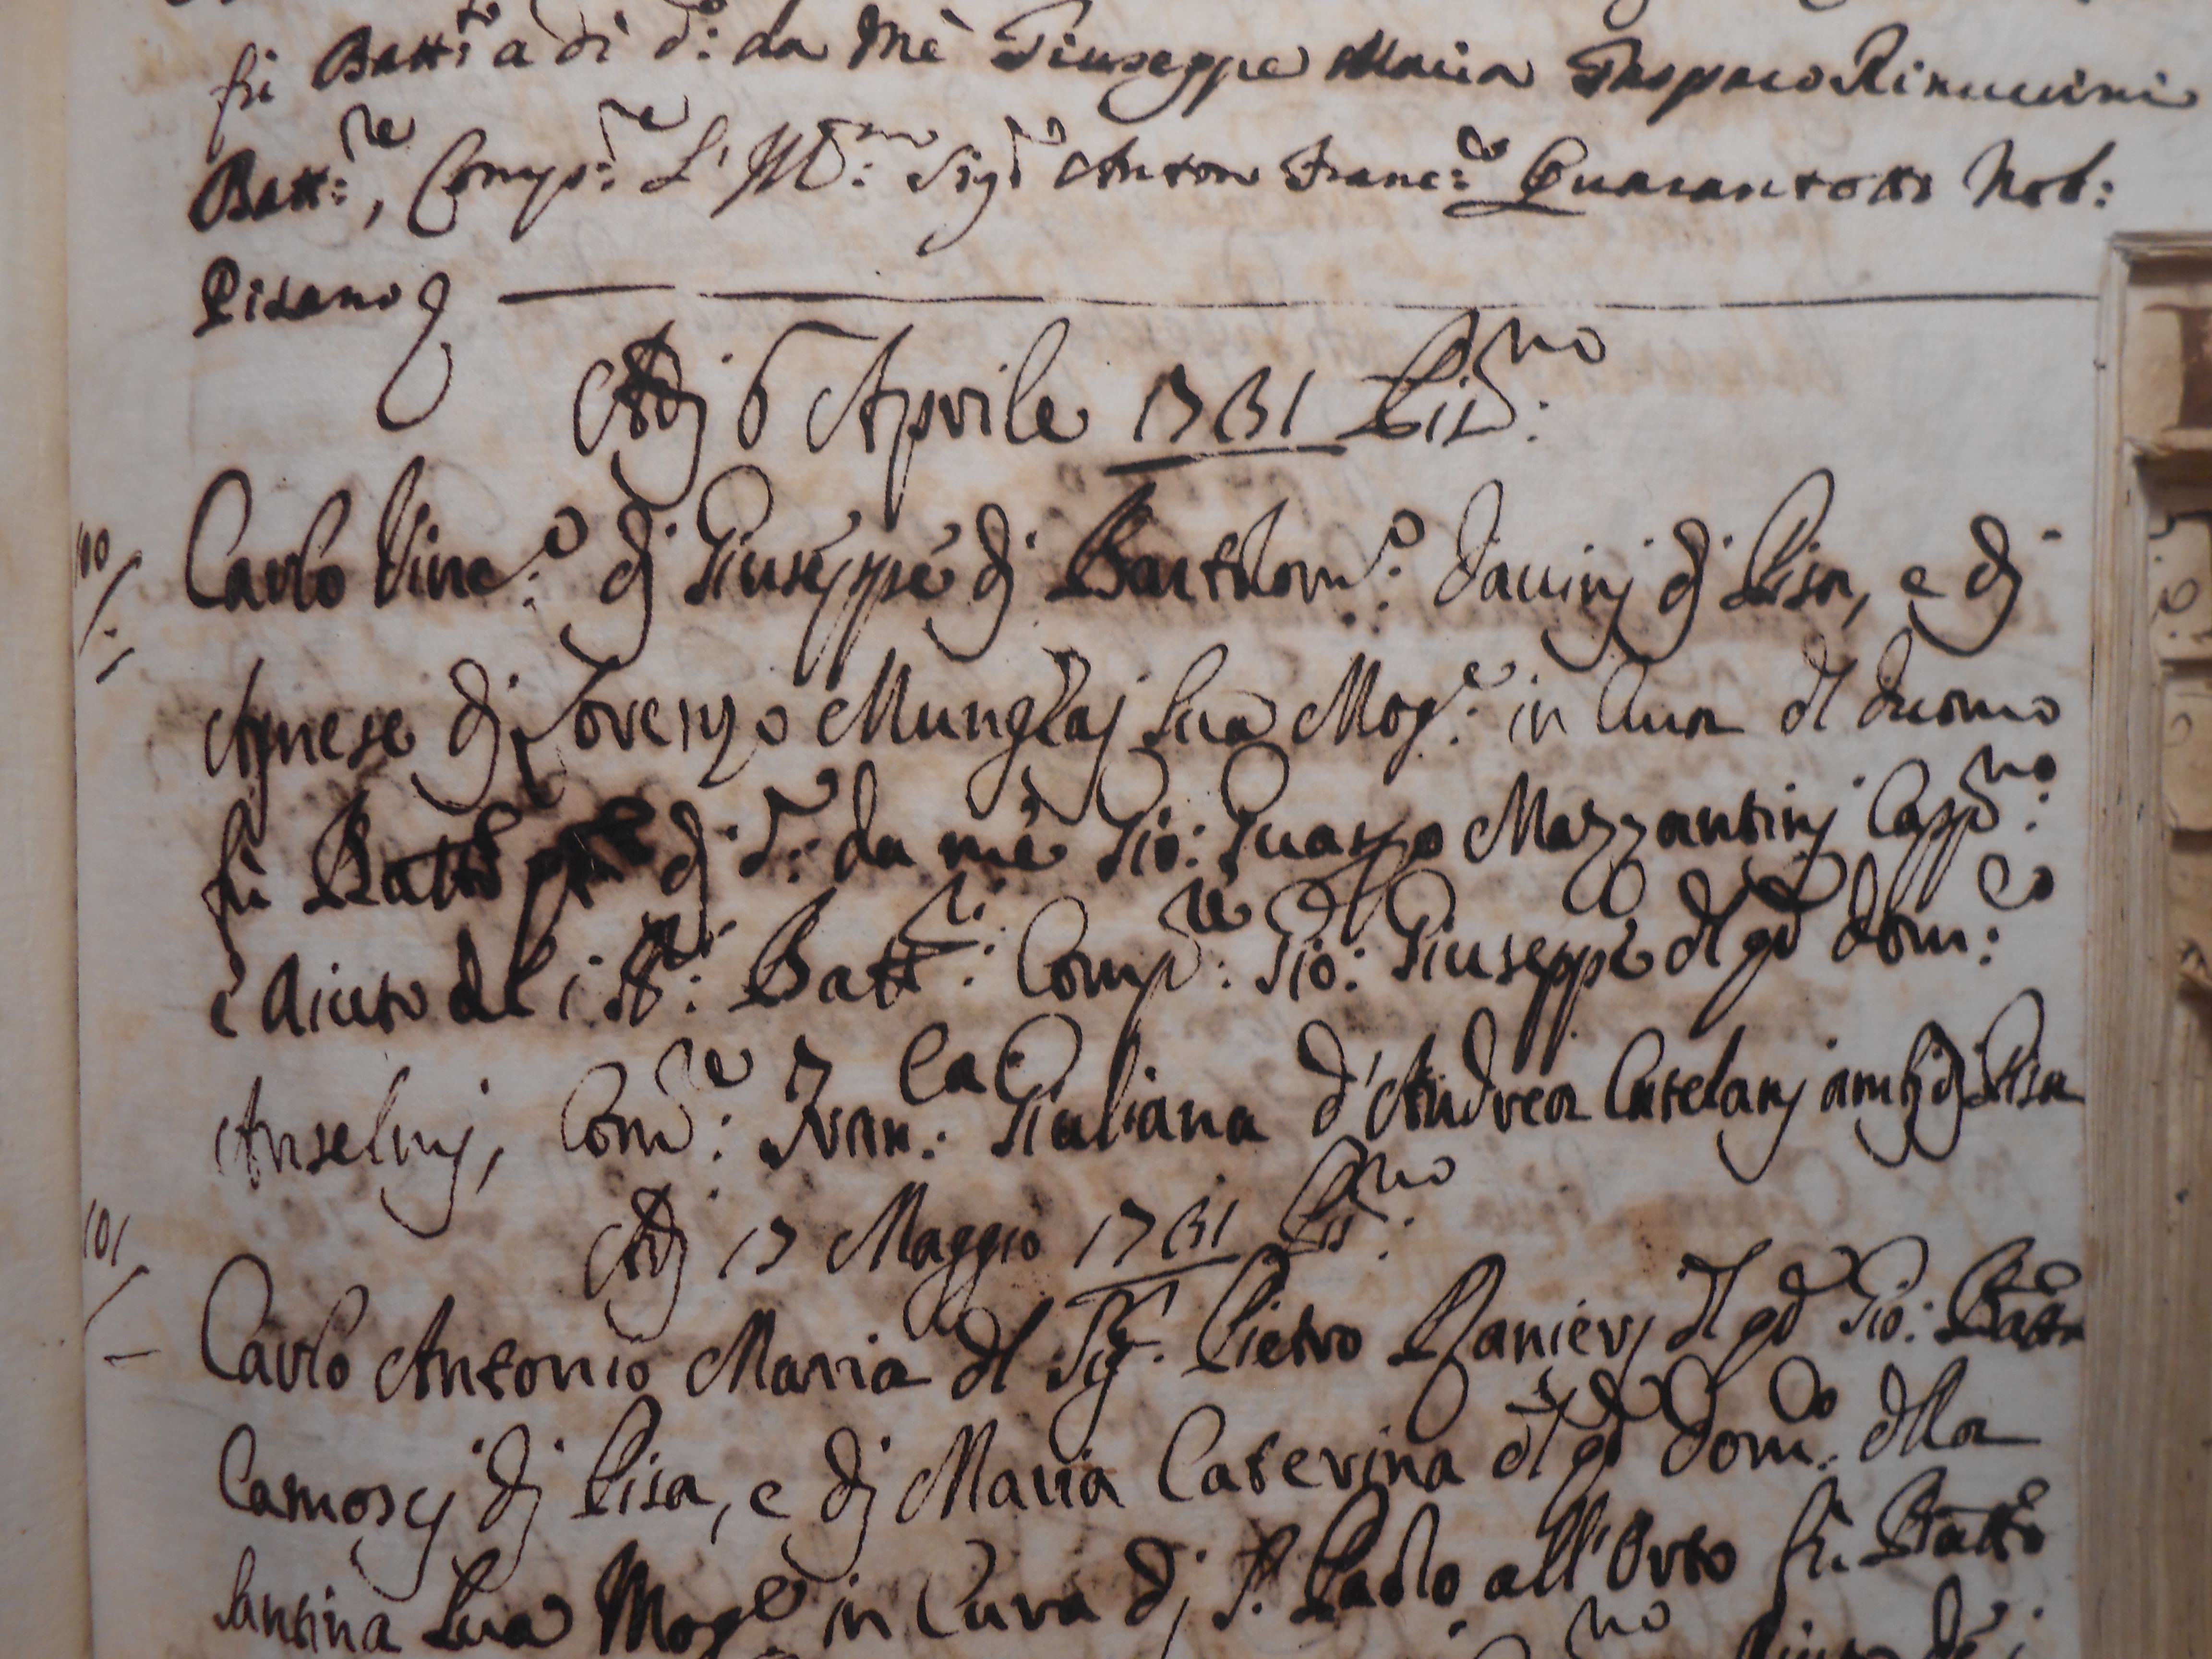 fù Batt:to a dì d:o da Mè Giuseppe Maria Gasparo Rinuccini
Batt:re, Comp:re L'Ill:mo Sig:r Anton Franc:co Quarantotti Nob:
Pisano
Adj 6 Aprile 1731 Pis:no
100 Carlo Vinc:o dj Giuseppe dj Bartolom:o Davinj dj Pisa, e dj
Agnese dj Lorenzo Mungaj sua Mog:e in Cura dl Duomo
fù Batt:o dj d:o da mè Gio: Mazzantinj Capp:no
è Aiuto del Batt:ro Comp:re Gio: Giuseppe dl qd Dom:co
Anselmj, Com:re Fran:ca Giuliana d'Andrea Catelanj amb: dj Pisa
101 Adj 17 Maggio 1731 Pis:no
Carlo Antonio Maria dl Sig:r Pietro Ranierj dl qd Gio: Batta
Camoscj dj Pisa, e dj Maria Caterina dl qd Dom:co dlla
Santina sua Mog:e in Cura dj S. Paolo all'Orto fù Batt:o